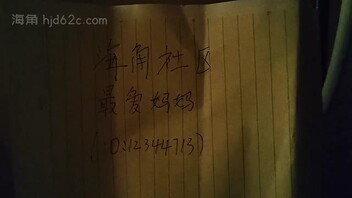 海角 hjd62c.com
海角社区
最爱妈妈
(ID:12344713)